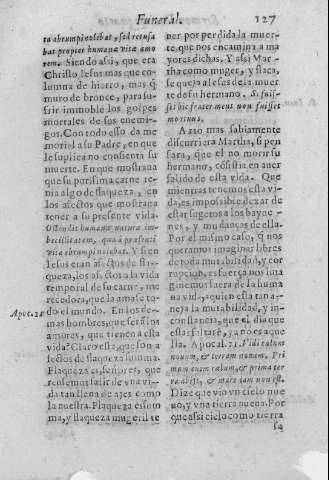 Funeral. 127
ta abrumpi nolebat, sed recusa
bat propter humanæ vitæ amo
rem. Siendo assi, que era
Christo Iesus mas que co-
lumna de hierro, mas q̃
muro de bronce, para su-
frir immoble los golpes
mortales de sus enemi-
gos. Con todo esso da me
morial a su Padre, en que
le suplica no consienta su
muerte. En que mostraua
que su purissima carne te-
nia algo de flaqueza, en
los afectos que mostraua
tener a su presente vida.
Ostendit humanæ naturæ im-
becillitatem, quæ à præsenti
vita abrumpi nolebat. Y si en
Iesus eran afectos de fla-
queza, los afectos a la vida
temporal de su carne, me
recedora, que la amasse to
do el mundo. En los de-
mas hombres, que seràn los
amores, que tienen a esta
vida? Claro està, que son a
fectos de flaqueza suma.
Flaqueza es, señores, que
rer se mos salir de una vi-
da tan llena de ajes como
la nuestra. Flaqueza es suma
ma, y flaqueza mugeril te
Apoc. 21
ner por perdida la muer-
te, que nos encamina a ma
yores dichas. Y assi Mar-
tha como muger, y flaca,
se quexa a Iesus de la muer
te de su hermano. Si fuis-
ses hic frater meus non fuisset
mortuus.
A ato mas sabiamente
discurriera Martha, si pen
sara, que el no morir su
hermano, consistia en auer
salido de esta vida. Que
mientras tenemos esta vi-
da, es impossible dexar de
estar sugetos a los bayue-
nes, y mudanças de ella.
Por el mismo caso, q̃ nos
queramos imaginar libres
de toda mutabilidad, y cor
rupcion, es fuerça nos ima
ginemos fuera de la huma
na vida, quien esta tan a-
neja la mutabilidad, y in-
constancia, que el dia que
esta faltare, ya no es aque
lla. Apocal. 21. Vidi cælum
nouum, & terram nouam. Pri
mum enim cælum, & prima ter
ra abijt, & mare iam non est.
Dize que vio vn cielo nue
uo, y vna tierra nueua. Por
que assi cielo como tierra
sq